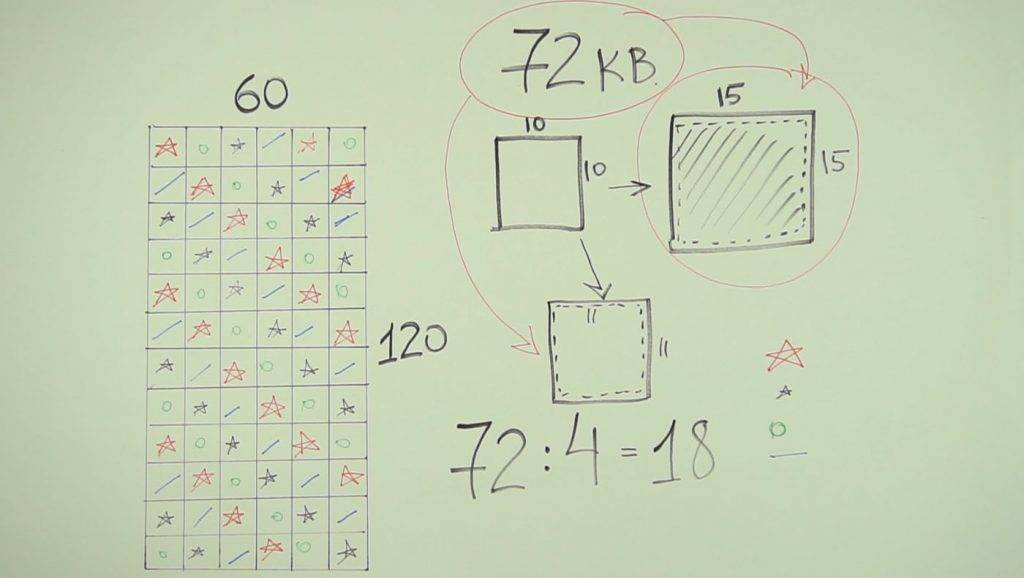 60
120
72 КВ.
10
10
15
15
11
11
72:4=18